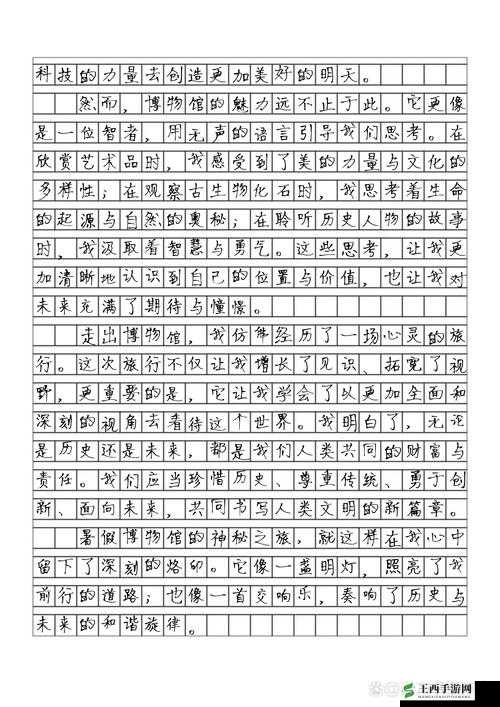 科技的力量去创造更加美好的明天。
然而，博物馆的魅力远不止于此。它更像
是一位智者，用无声的语言引导我们思考。在
欣赏艺术品时，我感受到了美的力量与文化的
多样性；在观察古生物化石时，我思考着生命
的起源与自然的奥秘；在聆听历史人物的故事
时，我汲取着智慧与勇气。这些思考，让我更
加清晰地认识到自己的位置与价值，也让我对
未来充满了期待与憧憬。
走出博物馆，我仿佛经历了一场心灵的旅
行。这次旅行不仅让我增长了见识、拓宽了视
野，更重要的是，它让我学会了以更加全面和
深刻的视角去看待这个世界。我明白了，无论
是历史还是未来，都是我们人类共同的财富与
责任。我们应当珍惜历史、尊重传统、勇于创
新、面向未来，共同书写人类文明的新篇章。
暑假博物馆的神秘之旅，就这样在我心中
留下了深刻的烙印。它像一盏明灯，照亮了我
前行的道路；也像一首交响乐，奏响了历史与
未来的和谐旋律。
王西手游网